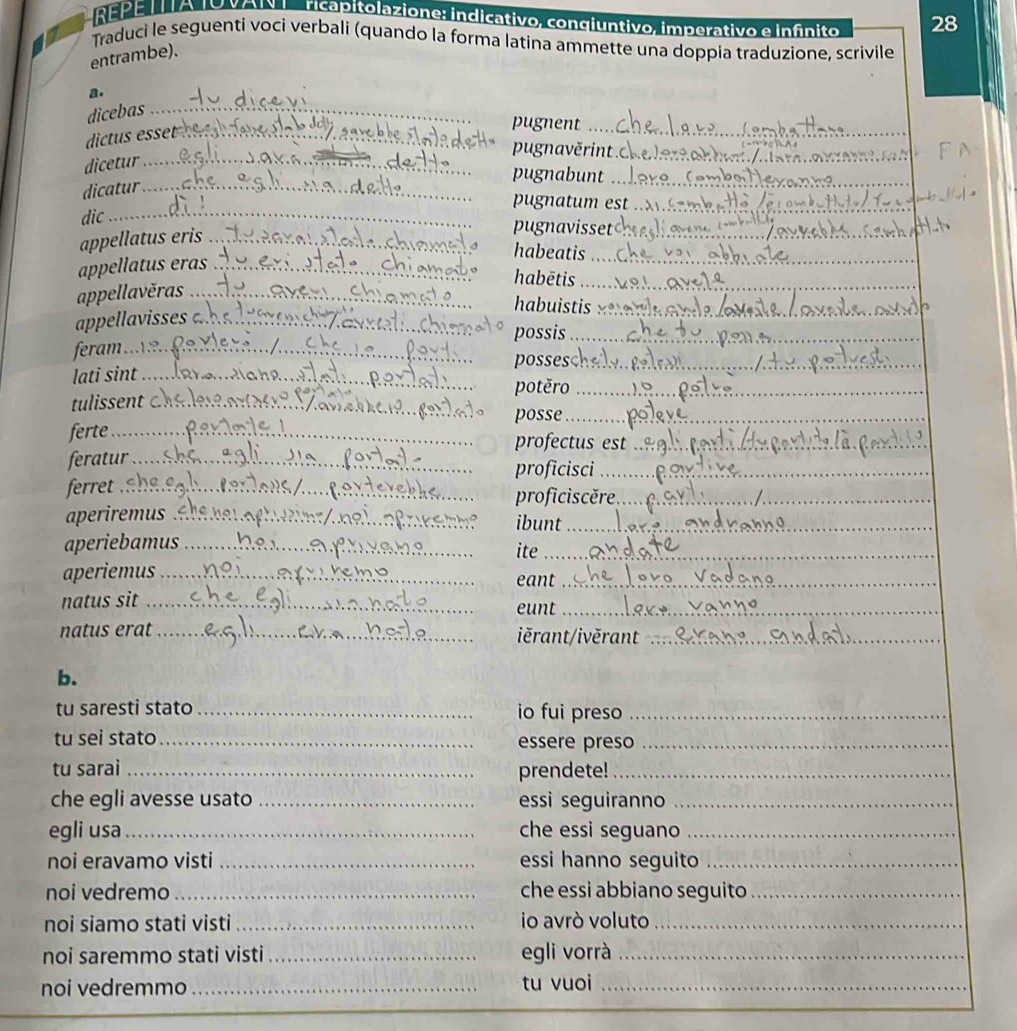 REPETITA IUVANT ricapitolazione: indicativo, congiuntivo, imperativo e infinito
28
7 Traduci le seguenti voci verbali (quando la forma latina ammette una doppia traduzione, scrivile
entrambe).
a.
dicebas tu dicevi
dictus esset che egli fosse stato / sarebbe stato detto
dicetur egli sarà detto
dicatur che egli sia detto
dic dì!
appellatus eris tu sarai stato chiamato
appellatus eras tu eri stato chiamato
appellavĕras tu avevi chiamato
appellavisses che tu / avresti chiamato
feram io porterò / che io porti
lati sint loro siano stati portati
tulissent che loro / avrebbero portato
ferte portate!
feratur che egli sia portato
ferret che egli portasse / porterebbe
aperiremus che noi aprissimo / noi apriremmo
aperiebamus noi aprivamo
aperiemus noi apriremo
natus sit che egli sia nato
natus erat egli era nato
pugnent che loro combattano
pugnavĕrint che loro / loro avranno
pugnabunt loro combatteranno
pugnatum est si combattè / è combattuto /
pugnavisset che egli avesse / avrebbe combattuto
habeatis che voi abbiate
habētis voi avete
habuistis voi avete avuto / aveste / aveste avuto
possis che tu possa
posses che tu potessi / tu potresti
potĕro io potrò
posse potere
profectus est egli partì / è partito / partito
proficisci partire
proficiscĕre parti /
ibunt loro andranno
ite andate
eant che loro vadano
eunt loro vanno
iĕrant/ivĕrant erano andati
b.
tu saresti stato
tu sei stato
tu sarai
che egli avesse usato
egli usa
noi eravamo visti
noi vedremo
noi siamo stati visti
noi saremmo stati visti
noi vedremmo
io fui preso
essere preso
prendete!
essi seguiranno
che essi seguano
essi hanno seguito
che essi abbiano seguito
io avrò voluto
egli vorrà
tu vuoi